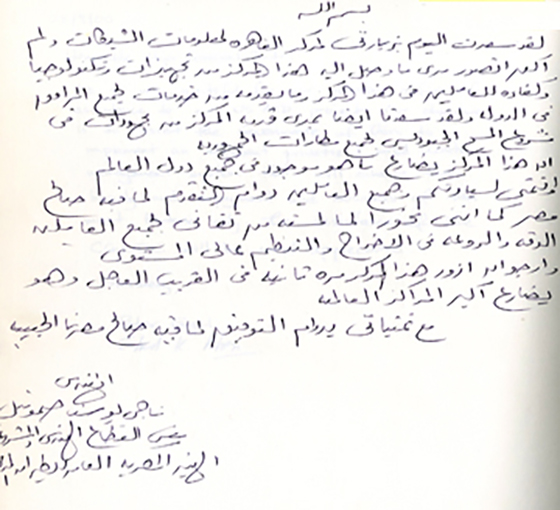 بسم الله
لقد سعدت اليوم بزيارتى لمركز القاهره لمعلومات الشبكات ولم
اكن اتصور مدى ما وصل اليه هذا المركز من تجهيزات وتكنولوجيا
وكفاءه للعاملين فى هذا المركز وما يقدمه من خدمات لجميع المرافق
فى الدوله ولقد سعدنا ايضا بمدى قدرت المركز من مجهودات فى
مشروع المسح الجيوديسى لجميع مطارات الجمهوريه
ان هذا المركز يضارع ما هو موجود فى جميع دول العالم
اتمنى لسيادتكم وجميع العاملين دوام التقدم لما فيه صالح
مصر كما اننى فخورا لما لمسته من تفانى لجميع العاملين
الدقه والروعه فى الاخراج والتنظيم عالى المستوى
وارجو ان ازور هذا المركز مره ثانيه فى القريب العاجل وهو
يضارع اكبر المراكز العالميه
مع تمنياتى بدوام التوفيق لما فيه صالح مصرنا الحبيبه
المهندس
ناجى
رئيس القطاع الهندسى
المصريه